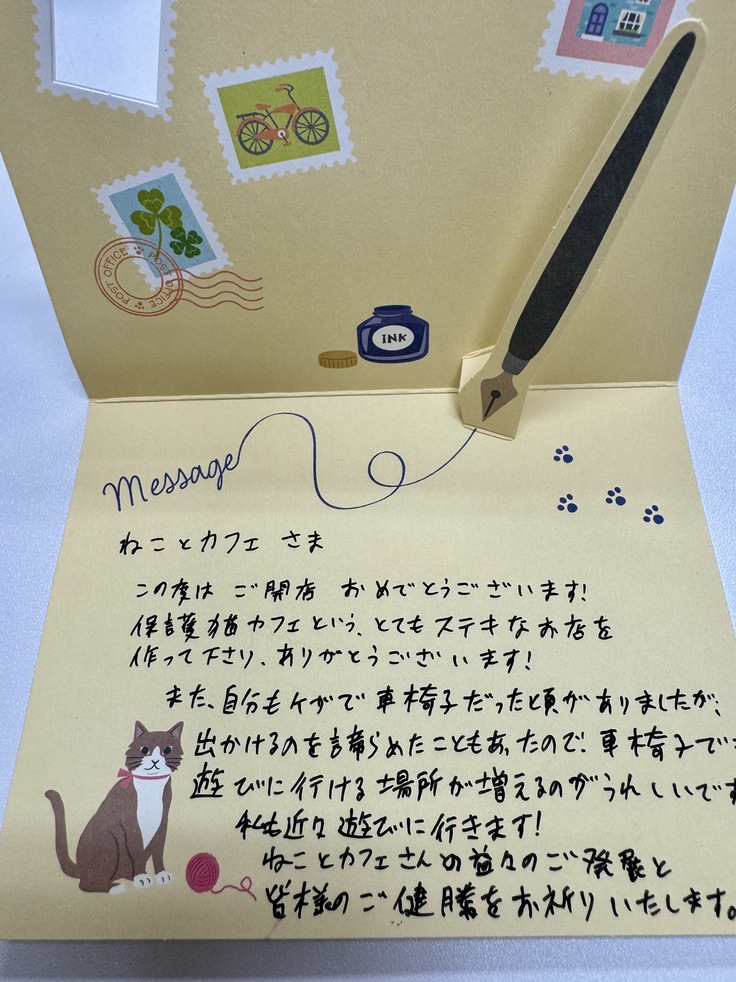 POST OFFICE POST OFFICE
INK
Message
ねことカフェ さま
この度は ご開店 おめでとうございます!
保護猫カフェという、とてもステキなお店を
作って下さり、ありがとうございます!
また、自分もケガで車椅子だった頃がありましたが、
出かけるのを諦らめたこともあったので、車椅子で
遊びに行ける場所が増えるのがうれしいです
私も近々遊びに行きます!
ねことカフェさんの益々のご発展と
皆様のご健勝をお祈りいたします。